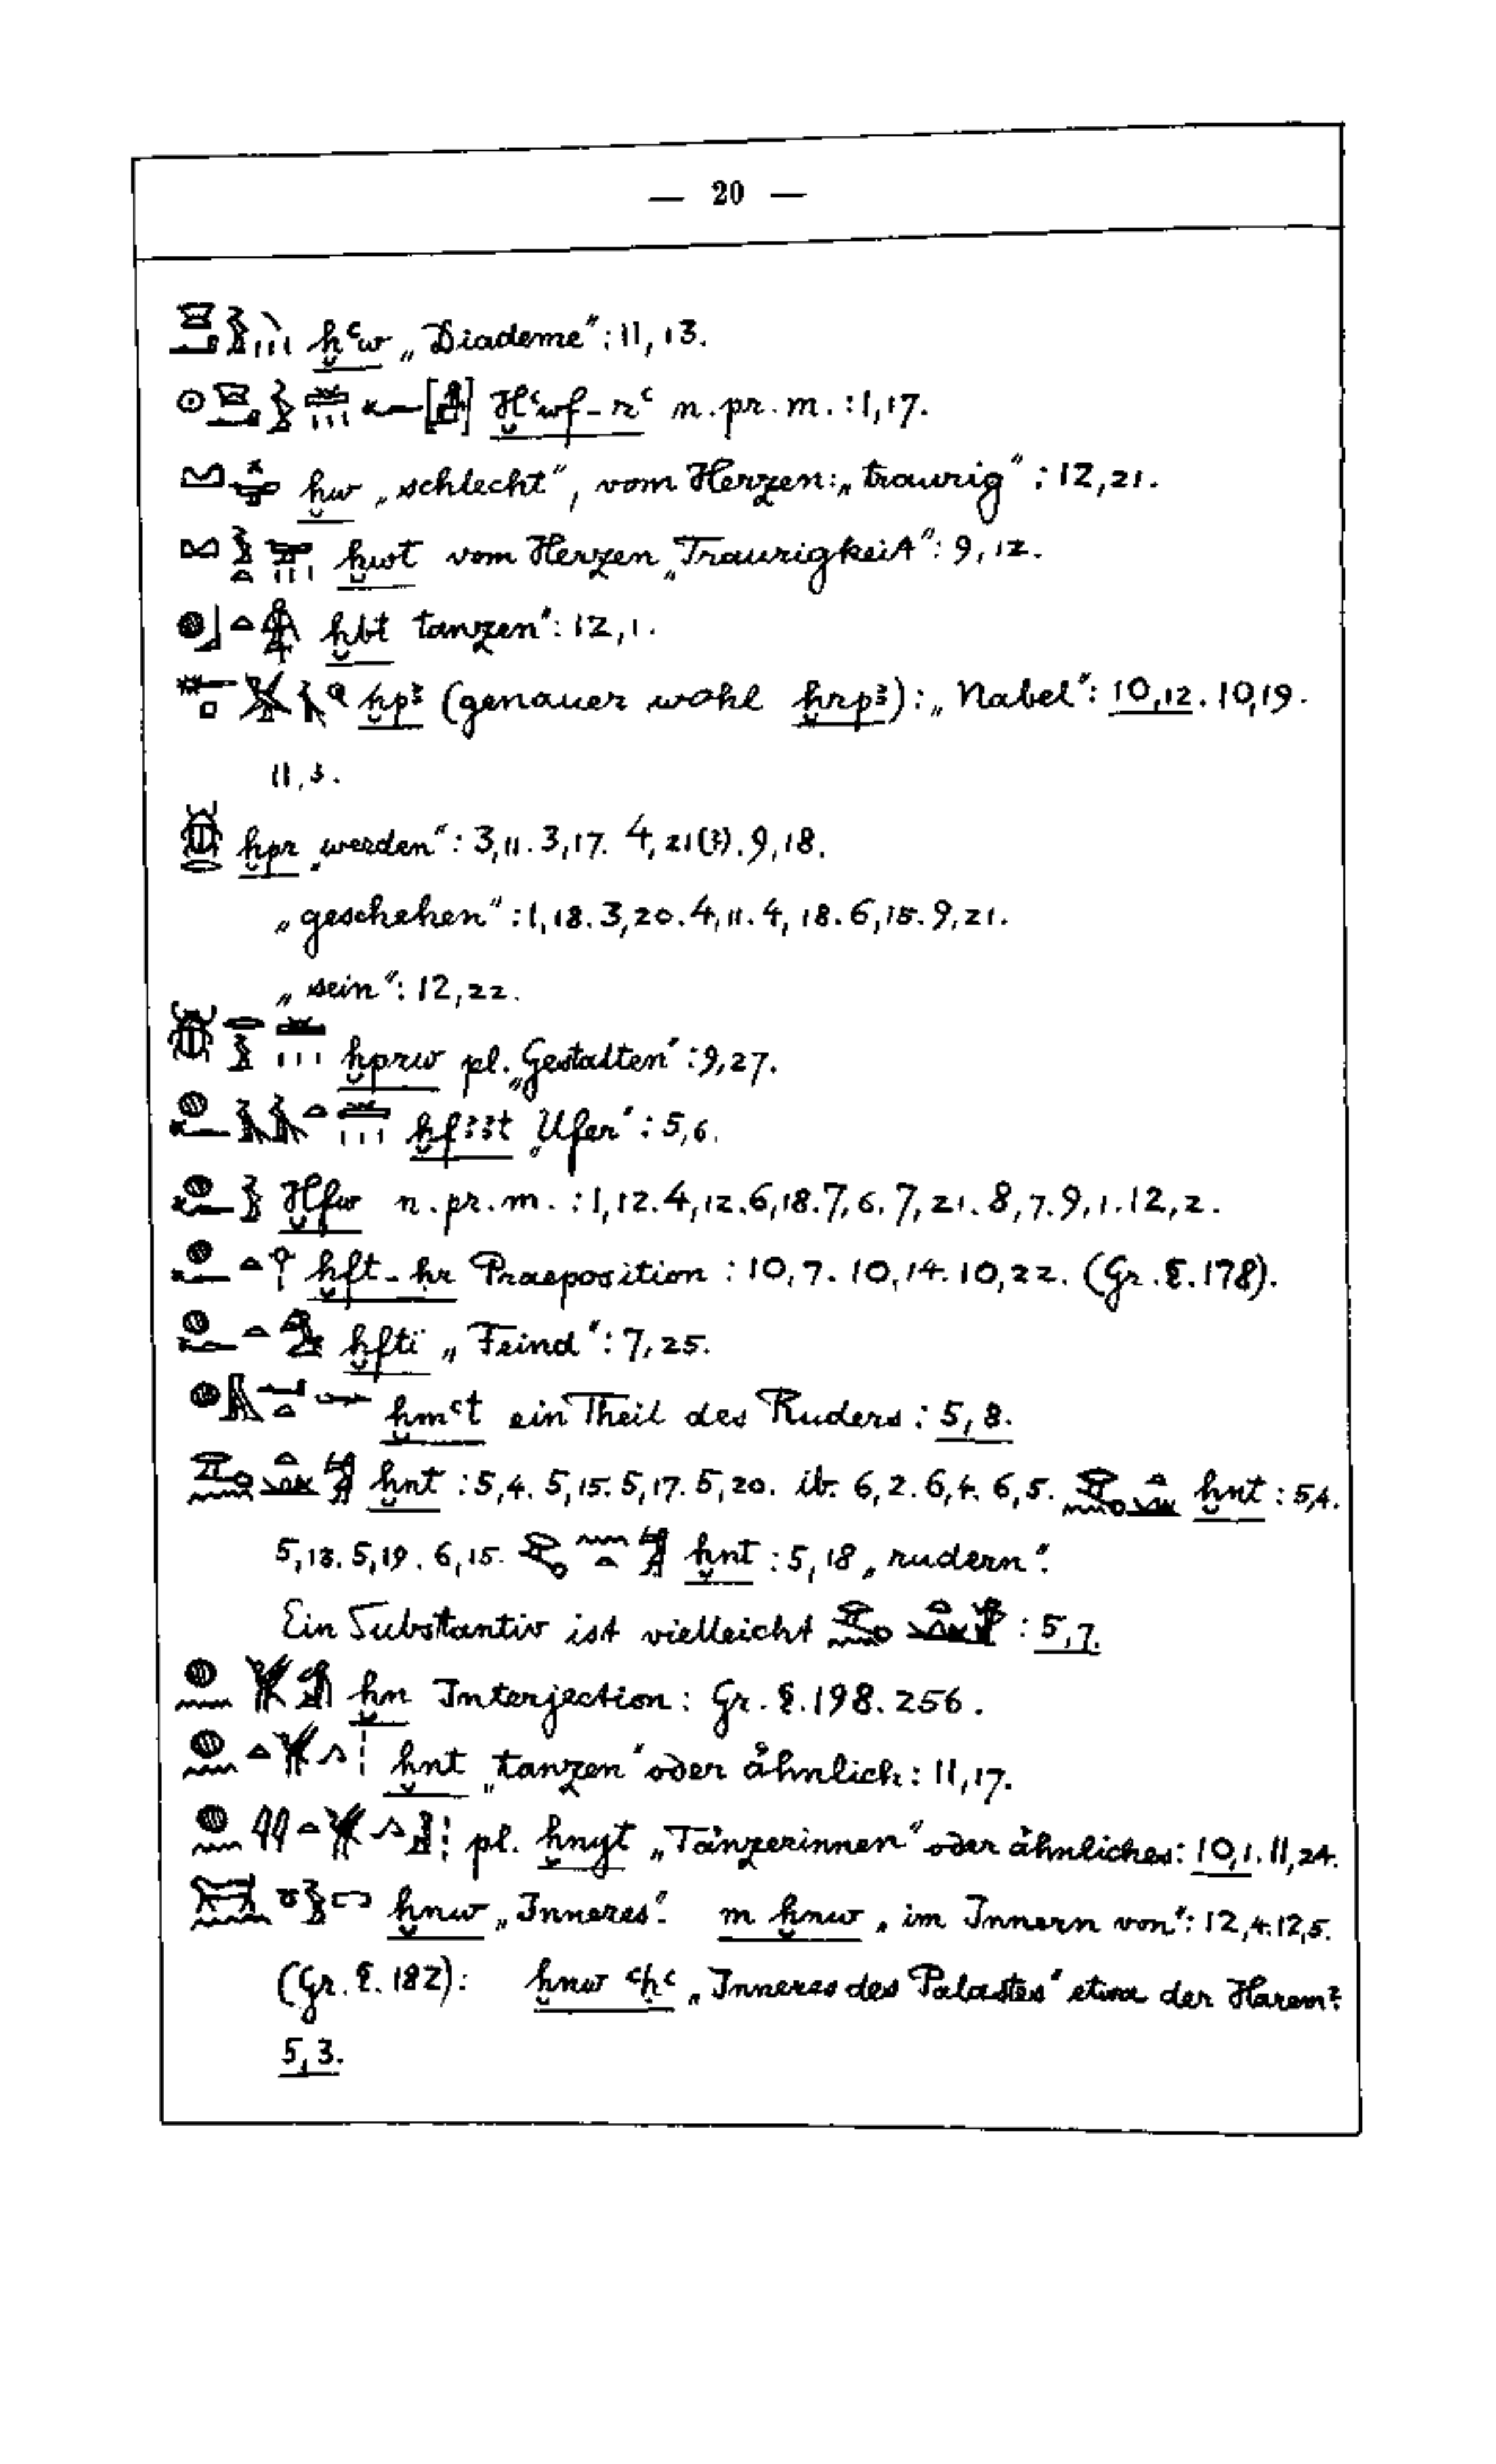 — 20 —
ḫꜥw „Diademe“: 11,13.
Ḫꜥwf-rꜥ n.pr.m.: 1,17.
ḫw „schlecht“, vom Herzen: „traurig“: 12,21.
ḫwt vom Herzen „Traurigkeit“: 9,12.
ḫbt tanzen“: 12,1.
ḫpꜣ (genauer wohl ḫrpꜣ): „Nabel“: 10,12. 10,19.
11,3.
ḫpr „werden“: 3,11. 3,17. 4,21(?). 9,18.
„geschehen“: 1,18. 3,20. 4,11. 4,18. 6,15. 9,21.
„sein“: 12,22.
ḫprw pl. „Gestalten“: 9,27.
ḫfꜣꜣt „Ufer“: 5,6.
Ḫfw n.pr.m.: 1,12. 4,12. 6,18. 7,6. 7,21. 8,7. 9,1. 12,2.
ḫft-ḥr Praeposition: 10,7. 10,14. 10,22. (Gr. §. 178).
ḫftï „Feind“: 7,25.
ḫmꜥt ein Theil des Ruders: 5,8.
ḫnt: 5,4. 5,15. 5,17. 5,20. ib. 6,2. 6,4. 6,5. ḫnt: 5,4.
5,13. 5,19. 6,15. ḫnt: 5,18 „rudern“.
Ein Substantiv ist vielleicht : 5,7.
ḫn Interjection: Gr. §. 198. 256.
ḫnt „tanzen“ oder ähnlich: 11,17.
pl. ḫnyt „Tänzerinnen“ oder ähnliches: 10,1. 11,24.
ẖnw „Inneres“. m ẖnw „im Innern von“: 12,4. 12,5.
(Gr. §. 182): ẖnw ꜥḥꜥ „Inneres des Palastes“ etwa der Harem?
5,3.